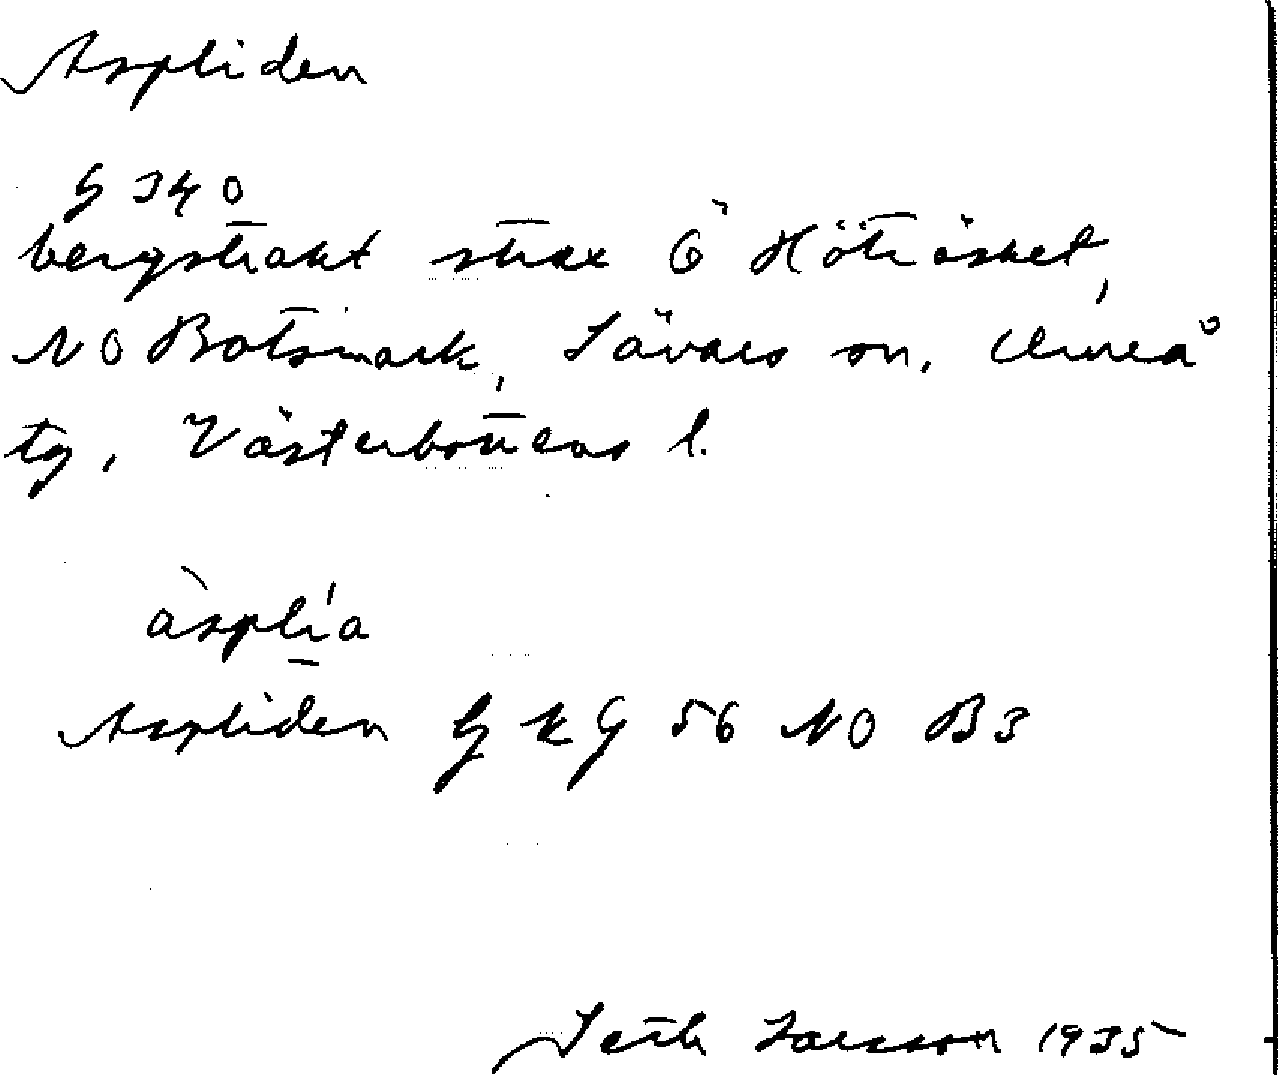 Aspliden
G 340
bergstrakt strax Ö Hötjäsket,
NO Botsmark, Sävars sn, Umeå
tg, Västerbottens l.
àsplía
Aspliden G k G 56 NO B3
Seth Larsson 1935